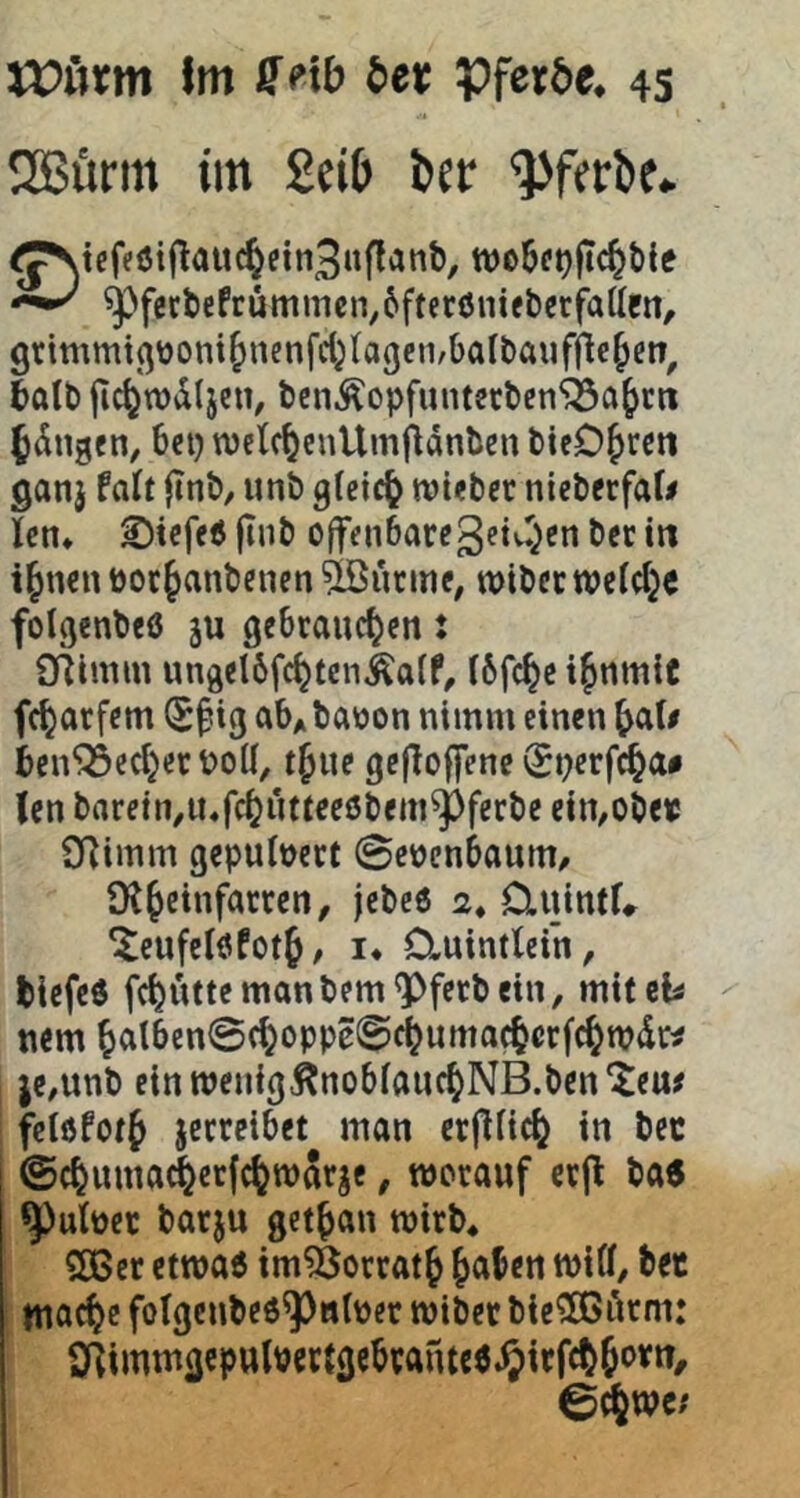 Würm im Leib der Pferde. 45
Würm im Leib der Pferde.
Dieses ist auch ein Zustand, wobey sich die
Pferde krümmen, öfters niederfallen,
grimmig von ihnen schlagen, bald aufstehen,
bald sich wäljen, den Kopf unter den Bahrn
hängen, bey welchen Umständen die Ohren
ganz kalt sind, und gleich wieder niederfal⸗
len. Dieses sind offenbare Zeichen der in
ihnen vorhandenen Würme, wider welche
folgendes zu gebrauchen :
Nimm ungelöschten Kalk, lösche ihn mit
scharfem Eßig ab, davon nimm einen hal⸗
ben Becher voll, thue gestossene Eyerscha⸗
len darein, u. schütte es dem Pferde ein, oder
Nimm gepulvert Sevenbaum,
Rheinfarren, jedes 2. Quintl.
Teufelskoth, 1. Quintlein,
dieses schütte man dem Pferd ein, mit ei⸗
nem halben Schoppē Schumacherschwär⸗
ze, und ein wenig Knoblauch NB. den Teu⸗
felskoth zerreibet man erstlich in der
Schumacherschwärze, worauf erst das
Pulver darzu gethan wird.
Wer etwas im Vorrath haben will, der
mache folgendes Pulver wider die Würm:
Nimm gepulvert gebrañtes Hirschhorn,
Schwe⸗